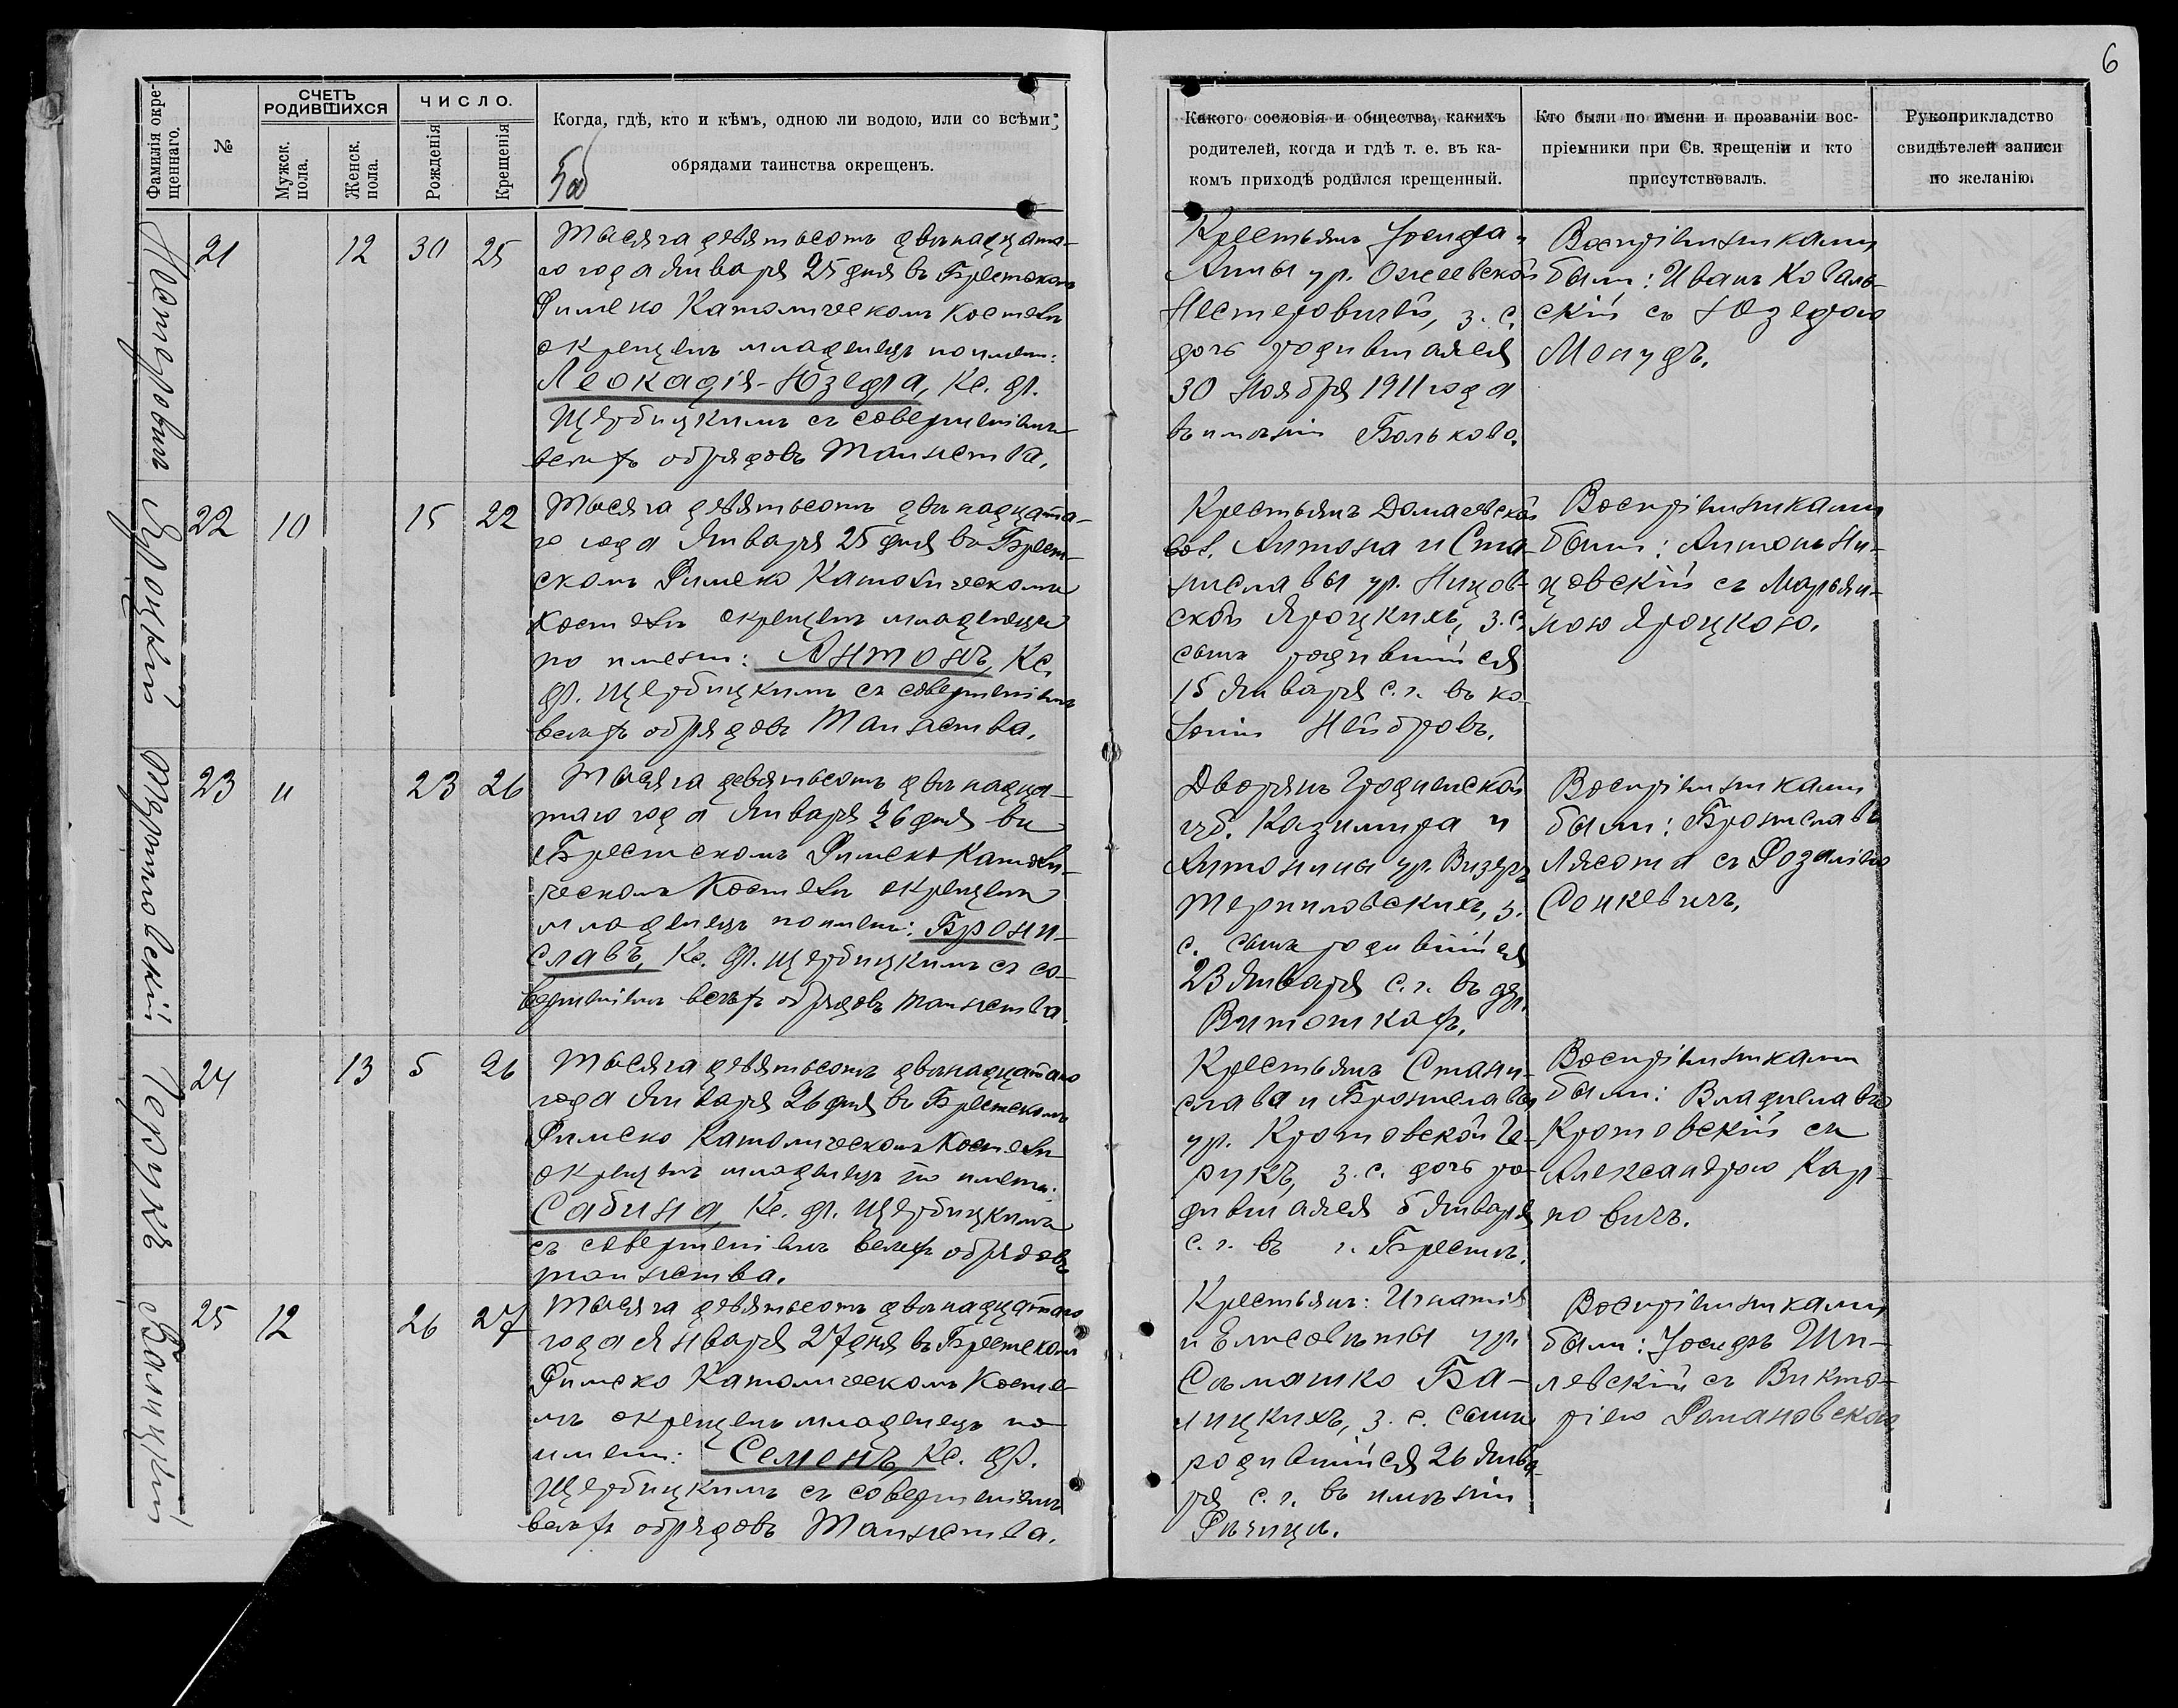 6
Фамилія окре-
щеннаго.
№
СЧЕТЪ
РОДИВШИХСЯ
Мужск.
пола.
Женск.
пола.
ЧИСЛО.
Рожденія
Крещенія
Когда, гдѣ, кто и кѣмъ, одною ли водою, или со всѣми
обрядами таинства окрещенъ.
Какого сословія и общества, какихъ
родителей, когда и гдѣ т. е. въ ка-
комъ приходѣ родился крещенный.
Кто были по имени и прозваніи вос-
пріемники при Св. крещеніи и кто
присутствовалъ.
Рукоприкладство
свидѣтелей записи
по желанію.
Нестеровичъ
21
12
30
25
Тысяча девятьсотъ двѣнадцата-
го года Января 25 дня въ Брестскомъ
Римско Католическомъ Костелѣ
окрещенъ младенецъ по имени:
Леокадія-Юзефа, Кс. Ф.
Щербицкимъ съ совершеніемъ
всѣхъ обрядовъ Таинства.
Крестьянъ Іосифа и
Анны ур. Ожеевской
Нестеровичей, з. с.
дочь родившаяся
30 Ноября 1911 года
въ имѣніи Больково.
Воспріемниками
были: Иванъ Коваль-
скій съ Юзефою
Мончдъ.
Яроцкій
22
10
15
22
Тысяча девятьсотъ двѣнадцата-
го года Января 25 дня въ Брест-
скомъ Римско Католическомъ
Костелѣ окрещенъ младенецъ
по имени: Антонъ, Кс.
Ф. Щербицкимъ съ совершеніемъ
всѣхъ обрядовъ Таинства.
Крестьянъ Домачевской
вол. Антона и Ста-
ниславы ур. Ницов-
ской Яроцкихъ, з. с.
сынъ родившійся
15 Января с. г. въ ко-
лоніи Нейдровъ.
Воспріемниками
были: Антонъ Ни-
цевскій съ Марьян-
ною Яроцкою.
Терпиловскій
23
11
23
26
Тысяча девятьсотъ двѣнадца-
таго года Января 26 дня въ
Брестскомъ Римско Католи-
ческомъ Костелѣ окрещенъ
младенецъ по имени: Брони-
славъ, Кс. Ф. Щербицкимъ съ со-
вершеніемъ всѣхъ обрядовъ таинства.
Дворянъ Гродненской
губ. Казимира и
Антонины ур. Визеръ
Терпиловскихъ, з.
с. сынъ родившійся
23 Января с. г. въ дер.
Витошкахъ.
Воспріемниками
были: Брониславъ
Лясота съ Розаліею
Сенкевичъ.
Церукъ
24
13
5
26
Тысяча девятьсотъ двѣнадцатаго
года Января 26 дня въ Брестскомъ
Римско Католическомъ Костелѣ
окрещенъ младенецъ по имени:
Сабина, Кс. Ф. Щербицкимъ
съ совершеніемъ всѣхъ обрядовъ
таинства.
Крестьянъ Стани-
слава и Брониславы
ур. Кротовской Це-
рукъ, з. с. дочь ро-
дившаяся 5 Января
с. г. въ г. Брестѣ.
Воспріемниками
были: Владиславъ
Кротовскій съ
Александрою Кар-
повичъ.
Балицкій
25
12
26
27
Тысяча девятьсотъ двѣнадцатаго
года Января 27 дня въ Брестскомъ
Римско Католическомъ Косте-
лѣ окрещенъ младенецъ по
имени: Семенъ, Кс. Ф.
Щербицкимъ съ совершеніемъ
всѣхъ обрядовъ Таинства.
Крестьянъ: Игнатія
и Елисаветы ур.
Съмашко Ба-
лицкихъ, з. с. сынъ
родившійся 26 Янва-
ря с. г. въ имѣніи
Рѣчица.
Воспріемниками
были: Іосифъ Ши-
левскій съ Викто-
ріею Романовскою.